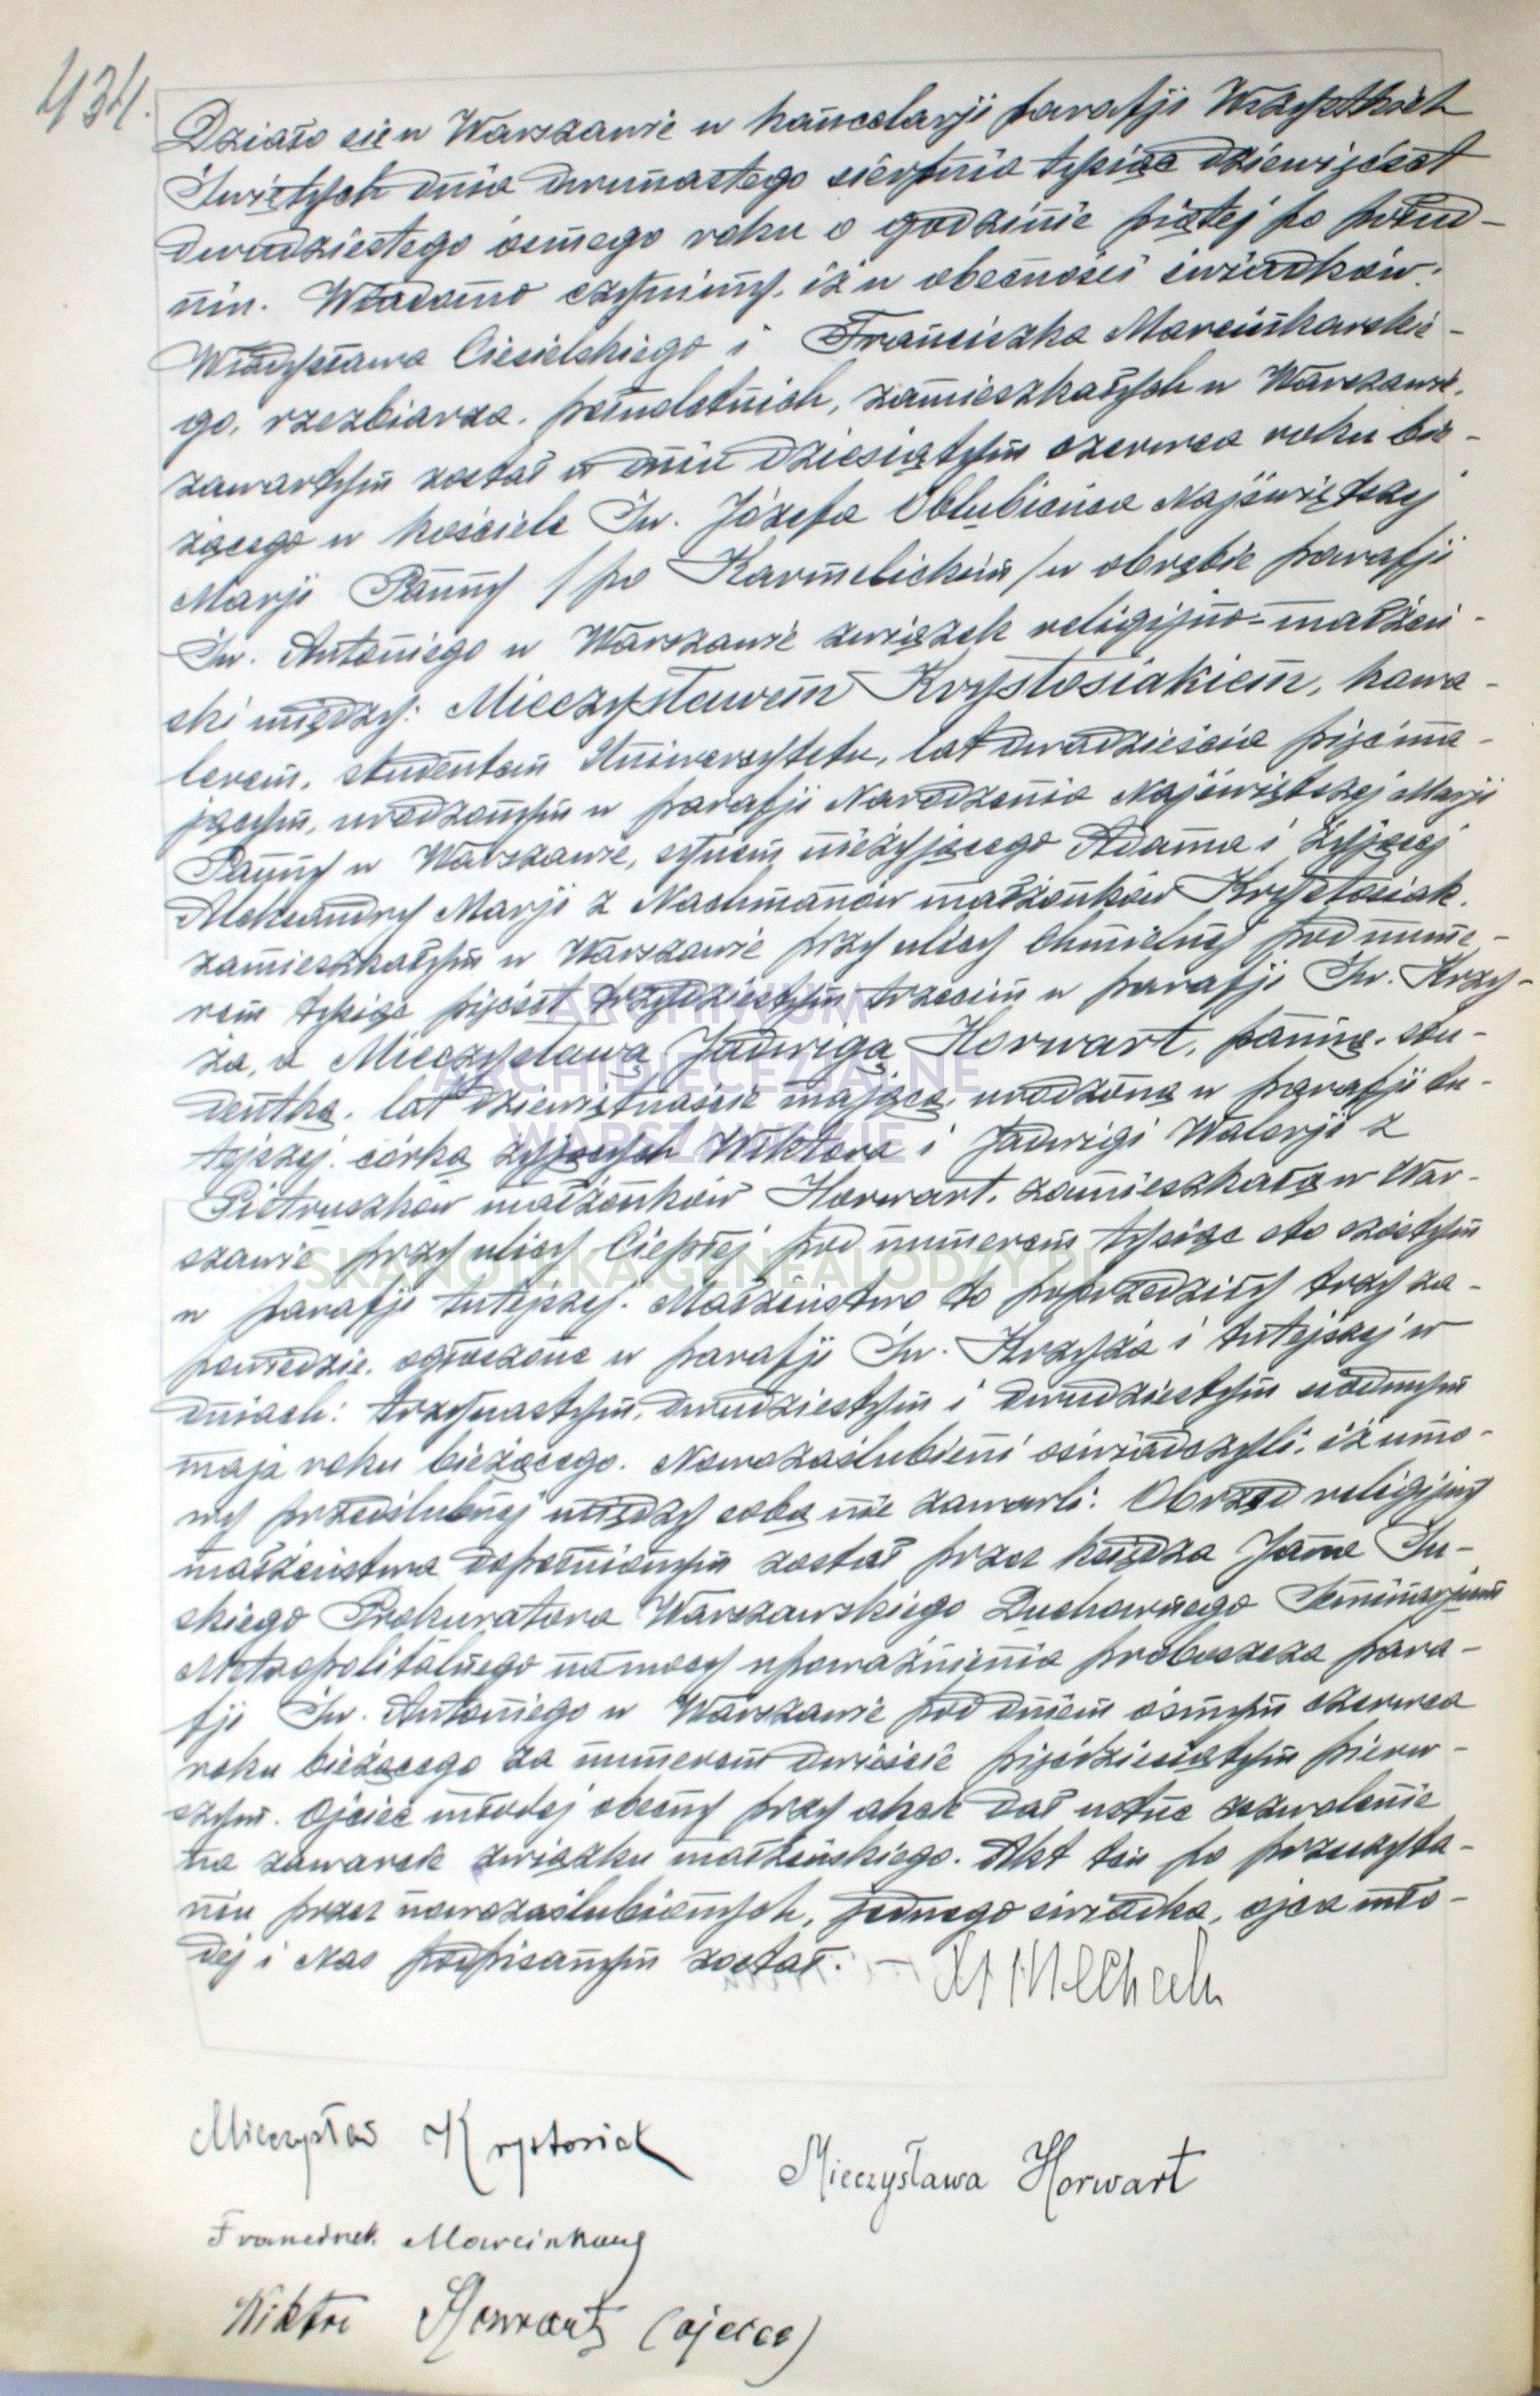 434.
Działo się w Warszawie w kancelarji parafji Wszystkich
Świętych dnia dwunastego sierpnia tysiąc dziewięćset
dwudziestego ósmego roku o godzinie piątej po połud-
niu. Wiadomo czynimy, iż w obecności świadków:
Władysława Ciesielskiego i Franciszka Marcinkowskie-
go, rzezbiarza, pełnoletnich, zamieszkałych w Warszawie,
zawartym został w dniu dziesiątym czerwca roku bie-
żącego w kościele Św. Józefa Oblubieńca Najświętszej
Marji Panny /po Karmelickim/ w obrębie parafji
Św. Antoniego w Warszawie związek religijno-małżeń-
ski między: Mieczysławem Krystosiakiem, kawa-
lerem, studentem Uniwersytetu, lat dwadzieścia pięć ma-
jącym, urodzonym w parafji Narodzenia Najświętszej Marji
Panny w Warszawie, synem nieżyjącego Adama i żyjącej
Aleksandry Marji z Nachmanów małżonków Krystosiak,
zamieszkałym w Warszawie przy ulicy Chmielnej pod nume-
rem tysiąc pięćset trzydziestym trzecim w parafji Św. Krzy-
ża, a Mieczysławą Jadwigą Horwart, panną, stu-
dentką, lat dziewiętnaście mającą, urodzoną w parafji tu-
tejszej, córką żyjących Wiktora i Jadwigi Walerji z
Pietruszków małżonków Horwart, zamieszkałą w War-
szawie przy ulicy Ciepłej pod numerem tysiąc sto szóstym
w parafji tutejszej. Małżeństwo to poprzedziły trzy za-
powiedzie, ogłoszone w parafji Św. Krzyża i tutejszej w
dniach: trzynastym, dwudziestym i dwudziestym siódmym
maja roku bieżącego. Nowozaślubieni oświadczyli, iż umo-
wy przedślubnej między sobą nie zawarli. Obrzęd religijny
małżeństwa dopełnionym został przez księdza Jana Su-
skiego Prokuratora Warszawskiego Duchownego Seminarjum
Metropolitalnego na mocy upoważnienia proboszcza para-
fji Św. Antoniego w Warszawie pod dniem ósmym czerwca
roku bieżącego za numerem dwieście pięćdziesiątym pierw-
szym. Ojciec młodej obecny przy akcie dał ustne zezwolenie
na zawarcie związku małżeńskiego. Akt ten po przeczyta-
niu przez nowozaślubionych, jednego świadka, ojca mło-
dej i Nas podpisanym został. —
Mieczysław Krystosiak
Mieczysława Horwart
Franciszek Marcinkowski
Wiktor Horwart (ojciec)
ARCHIWUM
ARCHIDIECEZJALNE
WARSZAWSKIE
SKANOTEKA.GENEALODZY.PL